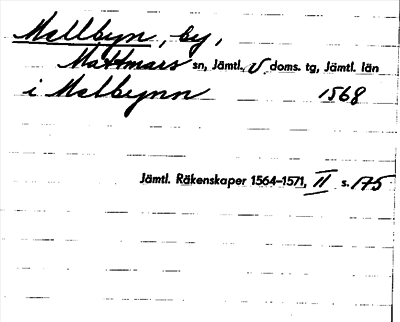 Mallbyn, by,
Mattmars sn, Jämtl. V doms. tg, Jämtl. län
i Malbynn 1568
Jämtl. Räkenskaper 1564–1571, II s. 175